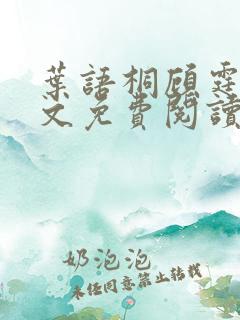 葉語桐顧霆
文免費閱讀
奶泡泡
未經同意禁止轉載